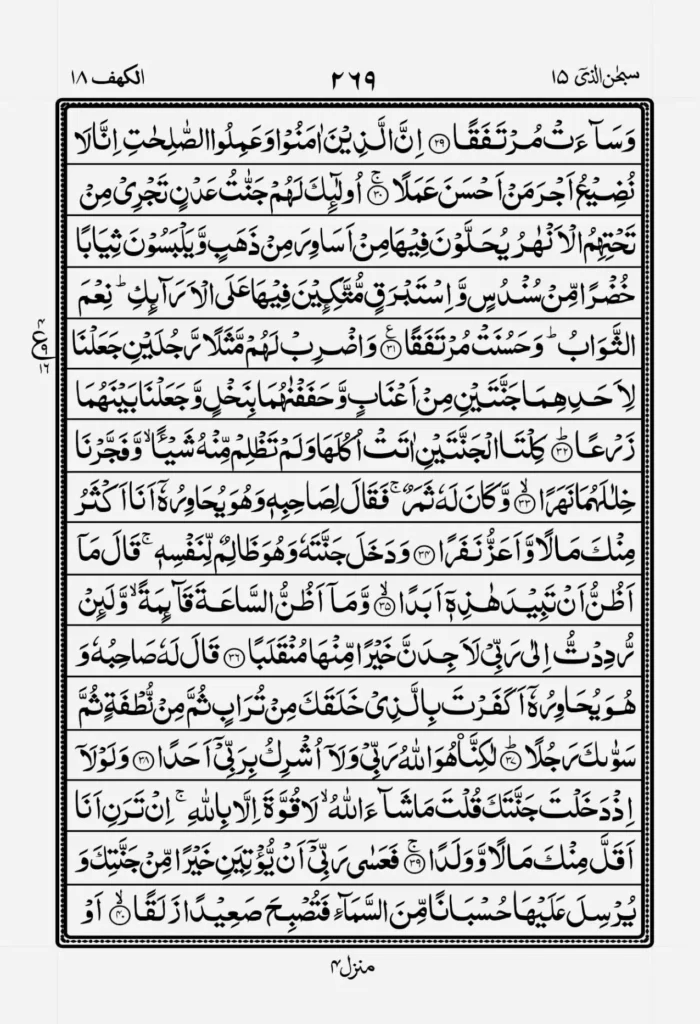 سبحٰن الذیٓ ۱۵ ۲۶۹ الکهف ۱۸
وَسَآءَتْ مُرْتَفَقًا ﴿۲۹﴾ اِنَّ الَّذِیْنَ اٰمَنُوْا وَعَمِلُوا الصّٰلِحٰتِ اِنَّا لَا
نُضِیْعُ اَجْرَ مَنْ اَحْسَنَ عَمَلًا ۚ﴿۳۰﴾ اُولٰٓئِكَ لَهُمْ جَنّٰتُ عَدْنٍ تَجْرِیْ مِنْ
تَحْتِهِمُ الْاَنْهٰرُ یُحَلَّوْنَ فِیْهَا مِنْ اَسَاوِرَ مِنْ ذَهَبٍ وَّیَلْبَسُوْنَ ثِیَابًا
خُضْرًا مِّنْ سُنْدُسٍ وَّاِسْتَبْرَقٍ مُّتَّكِـِٕیْنَ فِیْهَا عَلَی الْاَرَآىِٕكِ ؕ نِعْمَ
الثَّوَابُ ؕ وَحَسُنَتْ مُرْتَفَقًا ﴿۳۱﴾ ع وَاضْرِبْ لَهُمْ مَّثَلًا رَّجُلَیْنِ جَعَلْنَا
لِاَحَدِهِمَا جَنَّتَیْنِ مِنْ اَعْنَابٍ وَّحَفَفْنٰهُمَا بِنَخْلٍ وَّجَعَلْنَا بَیْنَهُمَا
زَرْعًا ؕ﴿۳۲﴾ كِلْتَا الْجَنَّتَیْنِ اٰتَتْ اُكُلَهَا وَلَمْ تَظْلِمْ مِّنْهُ شَیْـًٔا ۙ وَّفَجَّرْنَا
خِلٰلَهُمَا نَهَرًا ۙ﴿۳۳﴾ وَّكَانَ لَهٗ ثَمَرٌ ۚ فَقَالَ لِصَاحِبِهٖ وَهُوَ یُحَاوِرُهٗۤ اَنَا اَكْثَرُ
مِنْكَ مَالًا وَّاَعَزُّ نَفَرًا ﴿۳۴﴾ وَدَخَلَ جَنَّتَهٗ وَهُوَ ظَالِمٌ لِّنَفْسِهٖ ۚ قَالَ مَاۤ
اَظُنُّ اَنْ تَبِیْدَ هٰذِهٖۤ اَبَدًا ۙ﴿۳۵﴾ وَّمَاۤ اَظُنُّ السَّاعَةَ قَآىِٕمَةً ۙ وَّلَىِٕنْ
رُّدِدْتُّ اِلٰی رَبِّیْ لَاَجِدَنَّ خَیْرًا مِّنْهَا مُنْقَلَبًا ﴿۳۶﴾ قَالَ لَهٗ صَاحِبُهٗ وَ
هُوَ یُحَاوِرُهٗۤ اَكَفَرْتَ بِالَّذِیْ خَلَقَكَ مِنْ تُرَابٍ ثُمَّ مِنْ نُّطْفَةٍ ثُمَّ
سَوّٰىكَ رَجُلًا ؕ﴿۳۷﴾ لٰكِنَّا۠ هُوَ اللّٰهُ رَبِّیْ وَلَاۤ اُشْرِكُ بِرَبِّیْۤ اَحَدًا ﴿۳۸﴾ وَلَوْلَاۤ
اِذْ دَخَلْتَ جَنَّتَكَ قُلْتَ مَا شَآءَ اللّٰهُ ۙ لَا قُوَّةَ اِلَّا بِاللّٰهِ ۚ اِنْ تَرَنِ اَنَا
اَقَلَّ مِنْكَ مَالًا وَّوَلَدًا ۚ﴿۳۹﴾ فَعَسٰی رَبِّیْۤ اَنْ یُّؤْتِیَنِ خَیْرًا مِّنْ جَنَّتِكَ وَ
یُرْسِلَ عَلَیْهَا حُسْبَانًا مِّنَ السَّمَآءِ فَتُصْبِحَ صَعِیْدًا زَلَقًا ۙ﴿۴۰﴾ اَوْ
منزل ۴